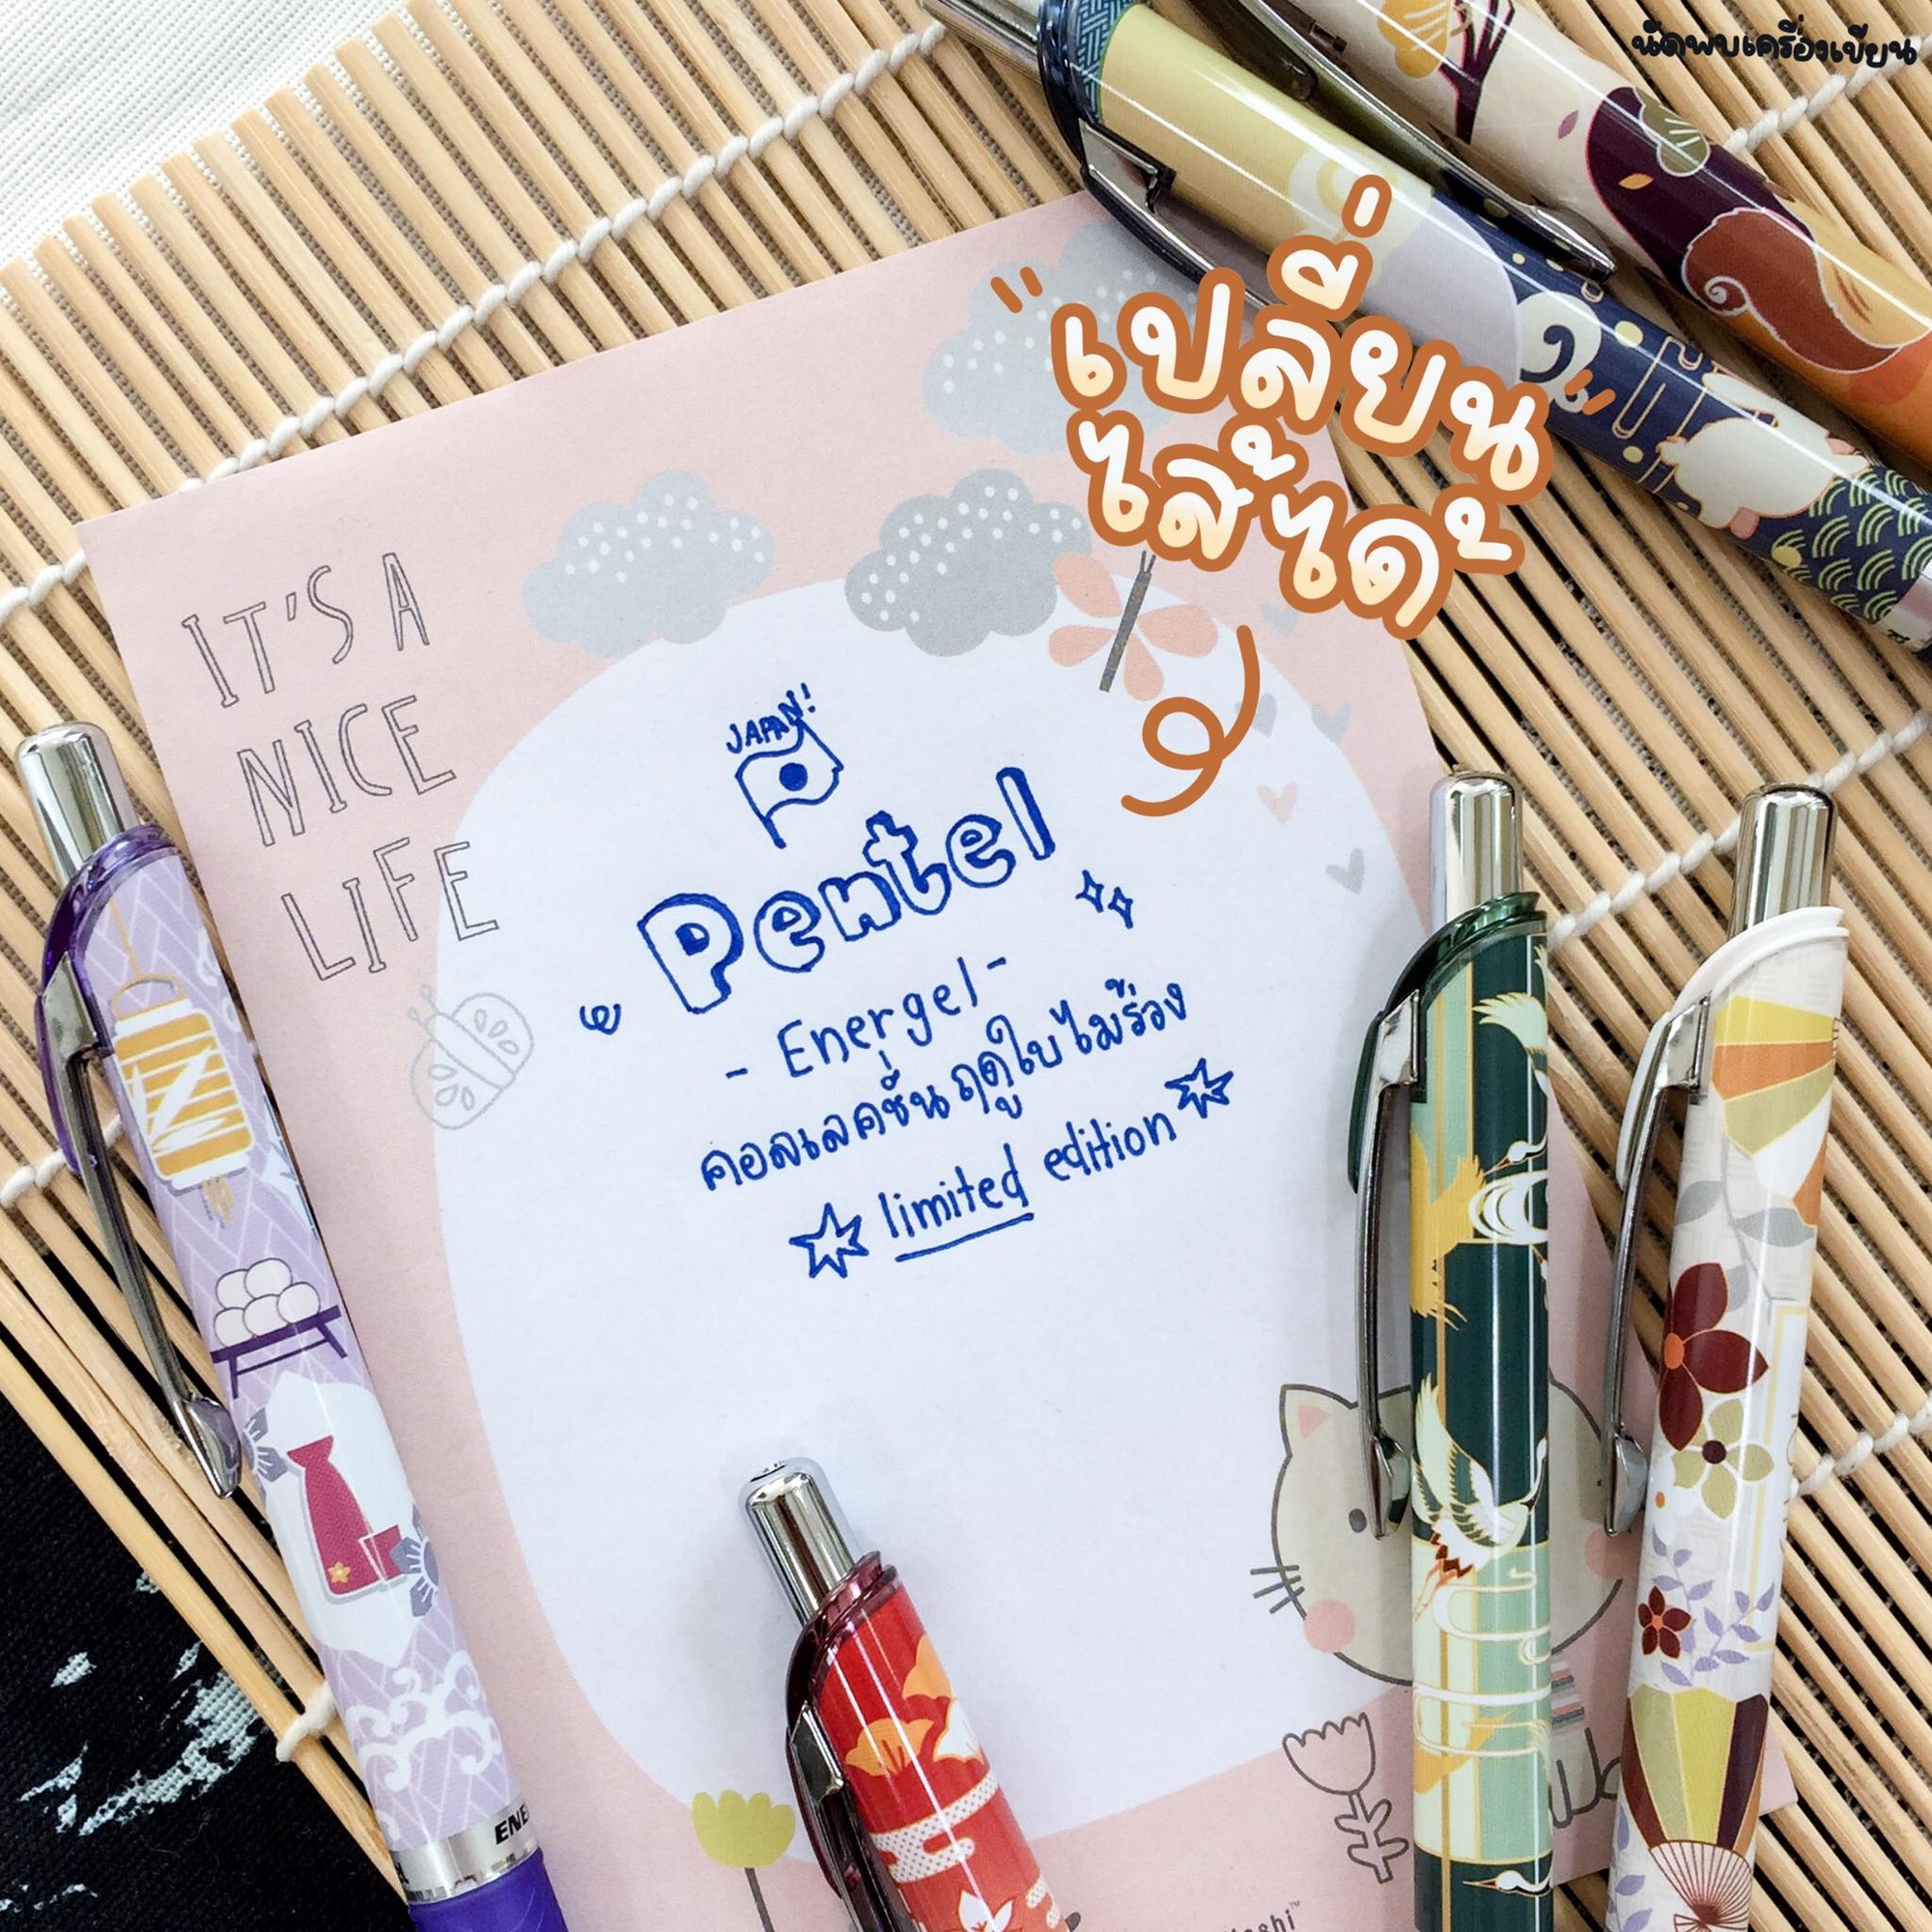 นัดพบเครื่องเขียน
"เปลี่ยน"
ไส้ได้
IT'S A
NICE
LIFE
JAPAN!
Pentel
- Energel -
คอลเลคชั่นฤดูใบไม้ร่วง
limited edition